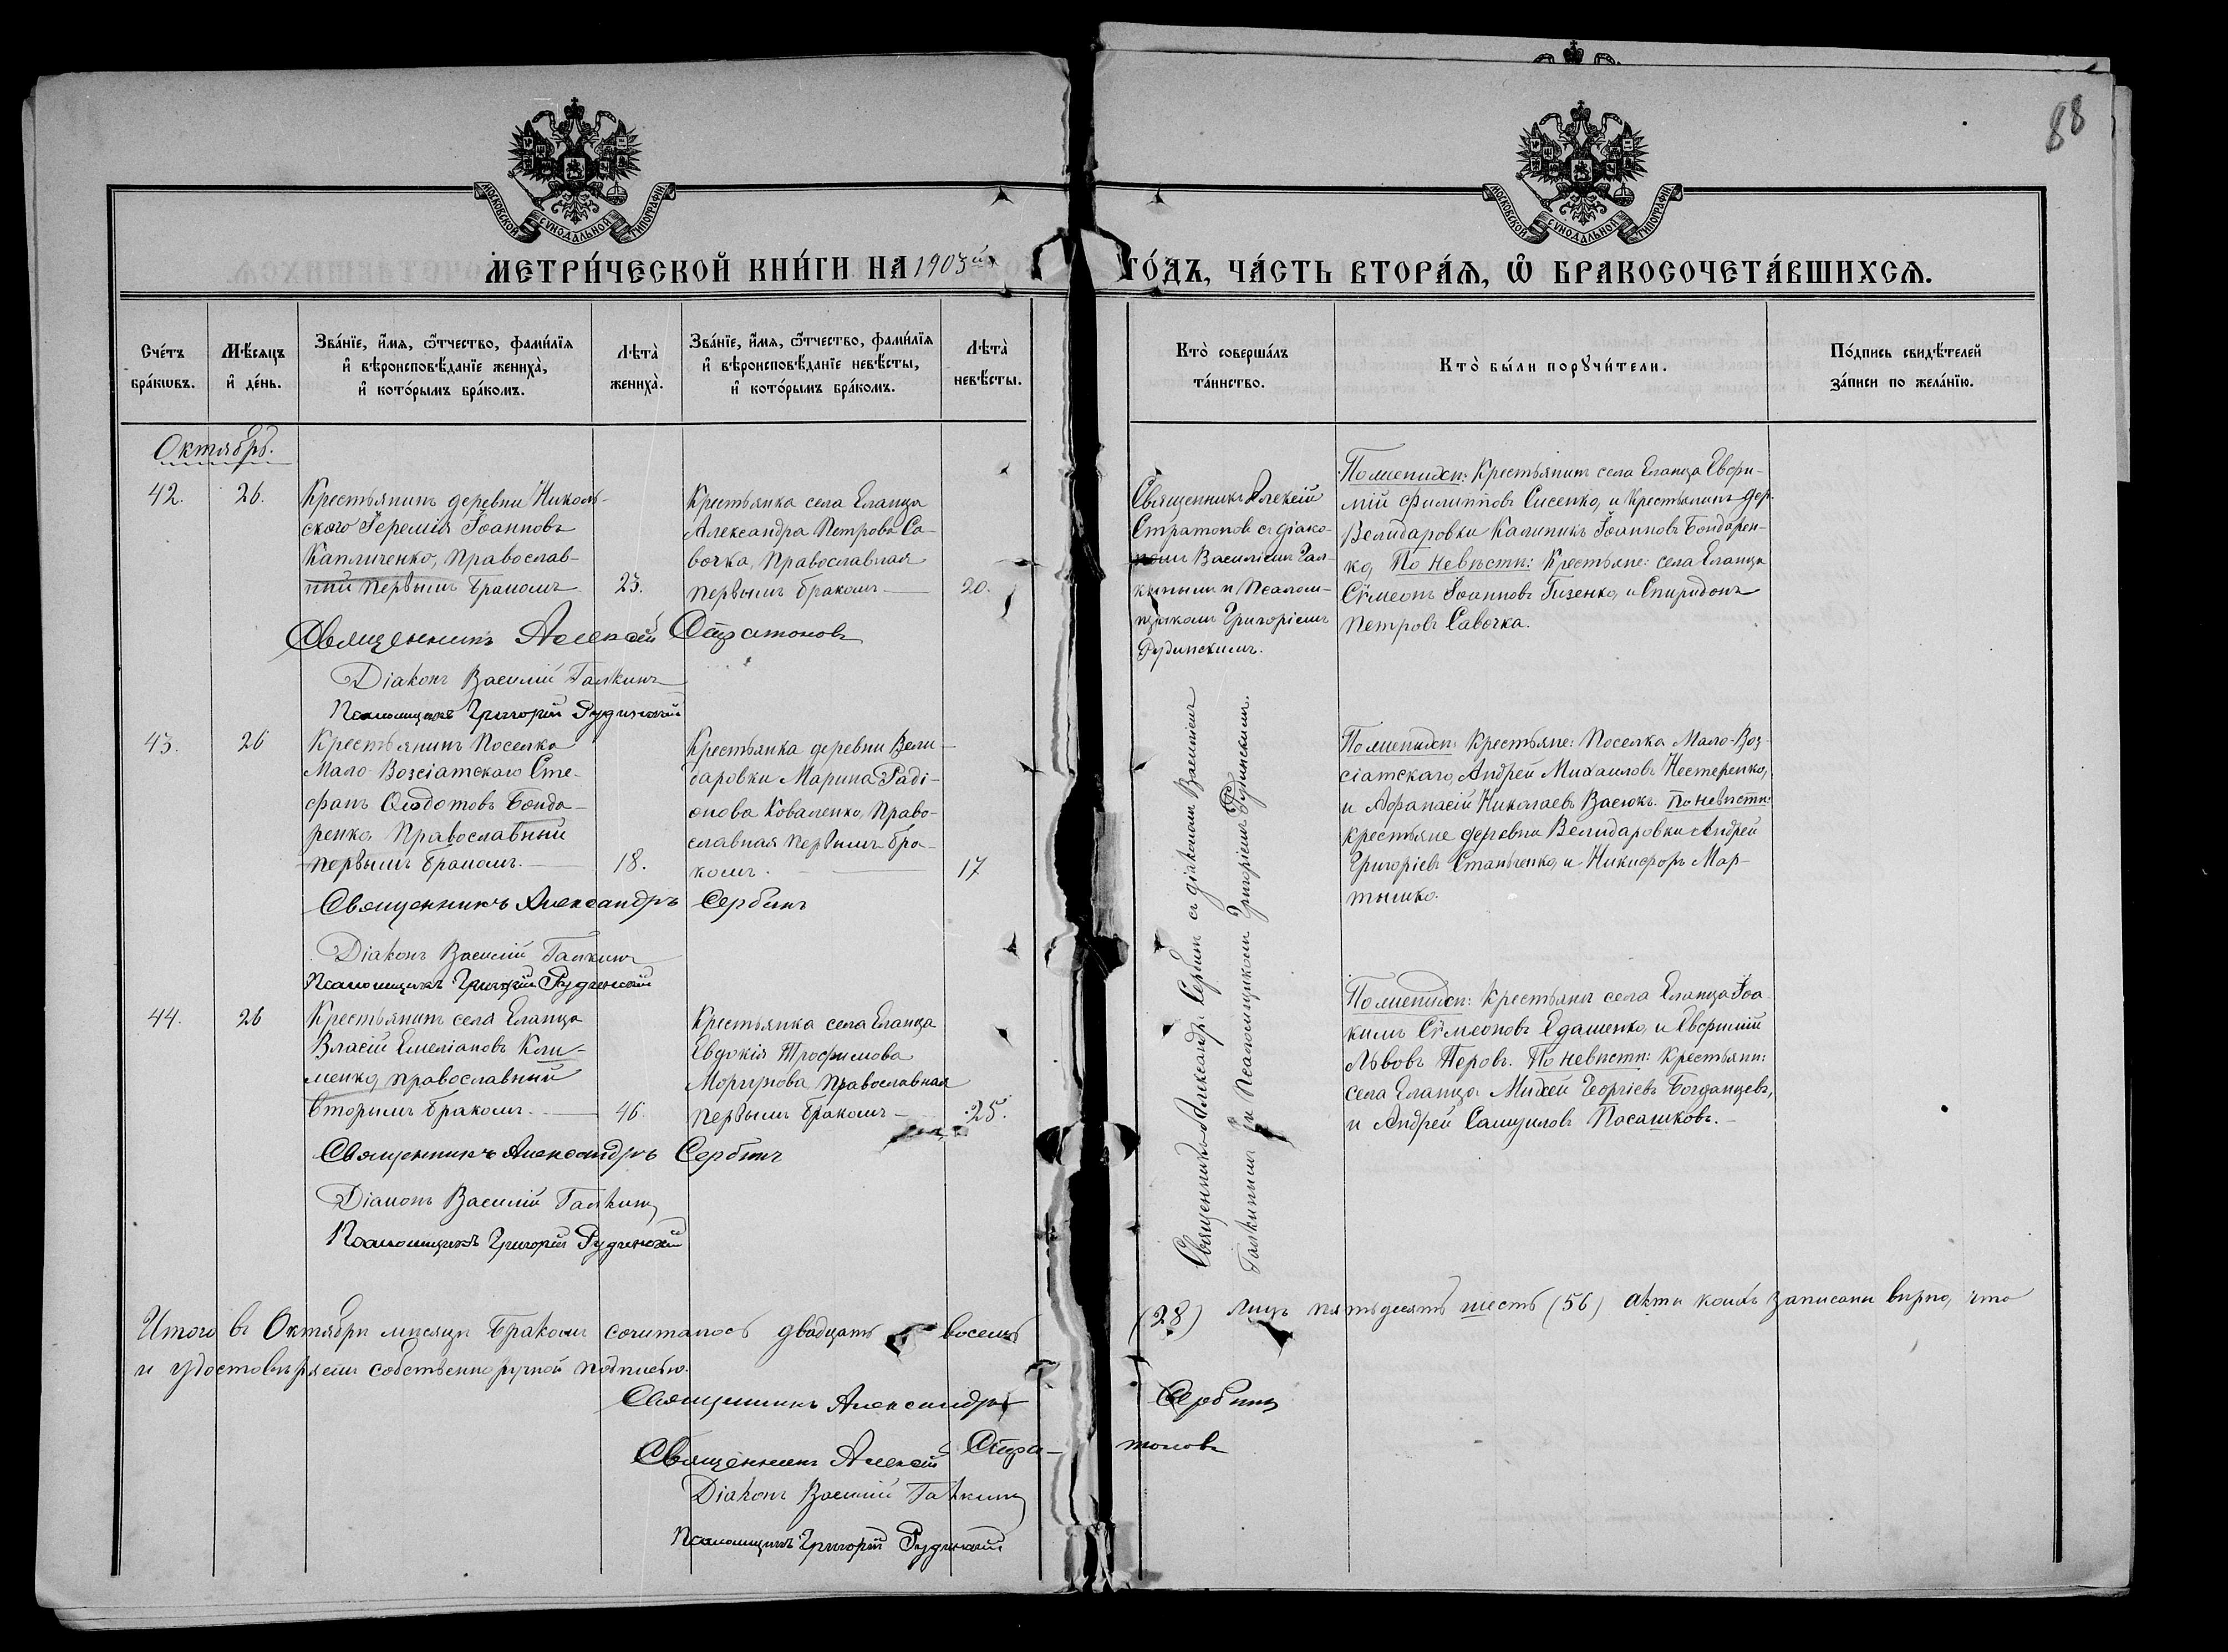 88
МОСКОВСКОЙ СѴНОДАЛЬНОЙ ТИПОГРАФІИ
МОСКОВСКОЙ СѴНОДАЛЬНОЙ ТИПОГРАФІИ
МЕТРИ́ЧЕСКОЙ КНИ́ГИ НА 1903й
ГО́ДЪ, ЧА́СТЬ ВТОРА́Ѧ, Ѽ БРАКОСОЧЕТА́ВШИХСѦ.
Сче́тъ бра́кѡвъ.
Мѣ́сяцъ и҆ де́нь.
Зва́нїе, и҆́мя, ѻ҆́тчество, фами́лїя и҆ вѣроисповѣ́данїе жениха̀, и҆ кото́рымъ бра́комъ.
Лѣта̀ жениха̀.
Зва́нїе, и҆́мя, ѻ҆́тчество, фами́лїя и҆ вѣроисповѣ́данїе невѣ́сты, и҆ кото́рымъ бра́комъ.
Лѣта̀ невѣ́сты.
Кто̀ соверша́лъ та́инство.
Кто̀ бы́ли порꙋчи́тели.
По́дпись свидѣ́телей за́писи по жела́нїю.
Октябрь.
42.
26.
Крестьянинъ деревни Николь-
ского Іеремія Іоанновъ
Капличенко, православ-
ный первымъ бракомъ
23.
Крестьянка села Еланца
Александра Петрова Са-
вочка, православная
первымъ бракомъ
20.
Священникъ Алексій
Стратоновъ съ діако-
номъ Василіемъ Гал-
кинымъ и псалом-
щикомъ Григоріемъ
Рудинскимъ.
По женихѣ: Крестьянинъ села Еланца Евфи-
мій Филипповъ Сисенко, и Крестьянинъ дер.
Велидаровки Калиникъ Іоанновъ Бондарен-
ко. По невѣстѣ: Крестьяне: села Еланца
Сѵмеонъ Іоанновъ Гизенко, и Спиридонъ
Петровъ Савочка.
Священникъ Алексій Стратоновъ
Діаконъ Василій Галкинъ
Псаломщикъ Григорій Рудинскій
43.
26
Крестьянинъ поселка
Мало-Возсіатскаго Сте-
фанъ Ѳедотовъ Бонда-
ренко, православный
первымъ бракомъ.
18.
Крестьянка деревни Вели-
даровки Марина Радіо-
нова Коваленко, право-
славная первымъ бра-
комъ.
17
Священникъ Александръ Сербинъ съ діакономъ Василіемъ
Галкинымъ и псаломщикомъ Григоріемъ Рудинскимъ.
По женихѣ: Крестьяне: поселка Мало-Воз-
сіатскаго, Андрей Михаиловъ Нестеренко,
и Афанасій Николаевъ Васюкъ. По невѣстѣ:
крестьяне деревни Велидаровки Андрей
Григоріевъ Станченко, и Никифоръ Мар-
тышко.
Священникъ Александръ Сербинъ
Діаконъ Василій Галкинъ
Псаломщикъ Григорій Рудинскій
44.
26
Крестьянинъ села Еланца
Власій Емеліановъ Кли-
менко, православный
вторымъ бракомъ.
46
Крестьянка села Еланца
Евдокія Трофимова
Моргунова, православная
первымъ бракомъ
25.
По женихѣ: крестьяне села Еланца Іоа
кимъ Сѵмеоновъ Едашенко, и Евфимій
Львовъ Перовъ. По невѣстѣ: крестьяни:
села Еланца Михей Георгіевъ Богданцевъ,
и Андрей Самуиловъ Посашковъ.
Священникъ Александръ Сербинъ
Діаконъ Василій Галкинъ
Псаломщикъ Григорій Рудинскій
Итого въ Октябрѣ мѣсяцѣ бракомъ сочиталось двадцать восемь (28) лицъ пятьдесятъ шесть (56) акты коихъ записаны вѣрно, что
и удостовѣряемъ собственноручной подписью.
Священникъ Александръ Сербинъ
Священникъ Алексій Стра-тоновъ
Діаконъ Василій Галкинъ
Псаломщикъ Григорій Рудинскій